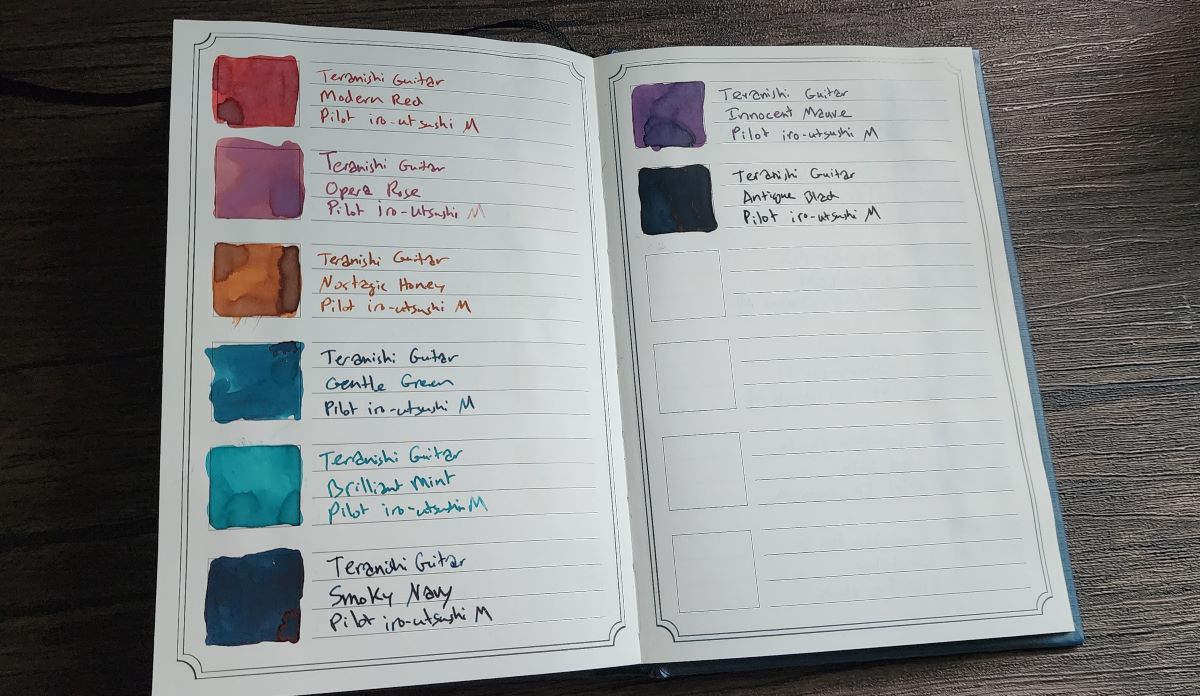 Teranishi Guitar
Modern Red
Pilot iro-utsushi M
Teranishi Guitar
Opera Rose
Pilot iro-utsushi M
Teranishi Guitar
Nostagic Honey
Pilot iro-utsushi M
Teranishi Guitar
Gentle Green
Pilot iro-utsushi M
Teranishi Guitar
Brilliant Mint
Pilot iro-utsushi M
Teranishi Guitar
Smoky Navy
Pilot iro-utsushi M
Teranishi Guitar
Innocent Mauve
Pilot iro-utsushi M
Teranishi Guitar
Antique Black
Pilot iro-utsushi M